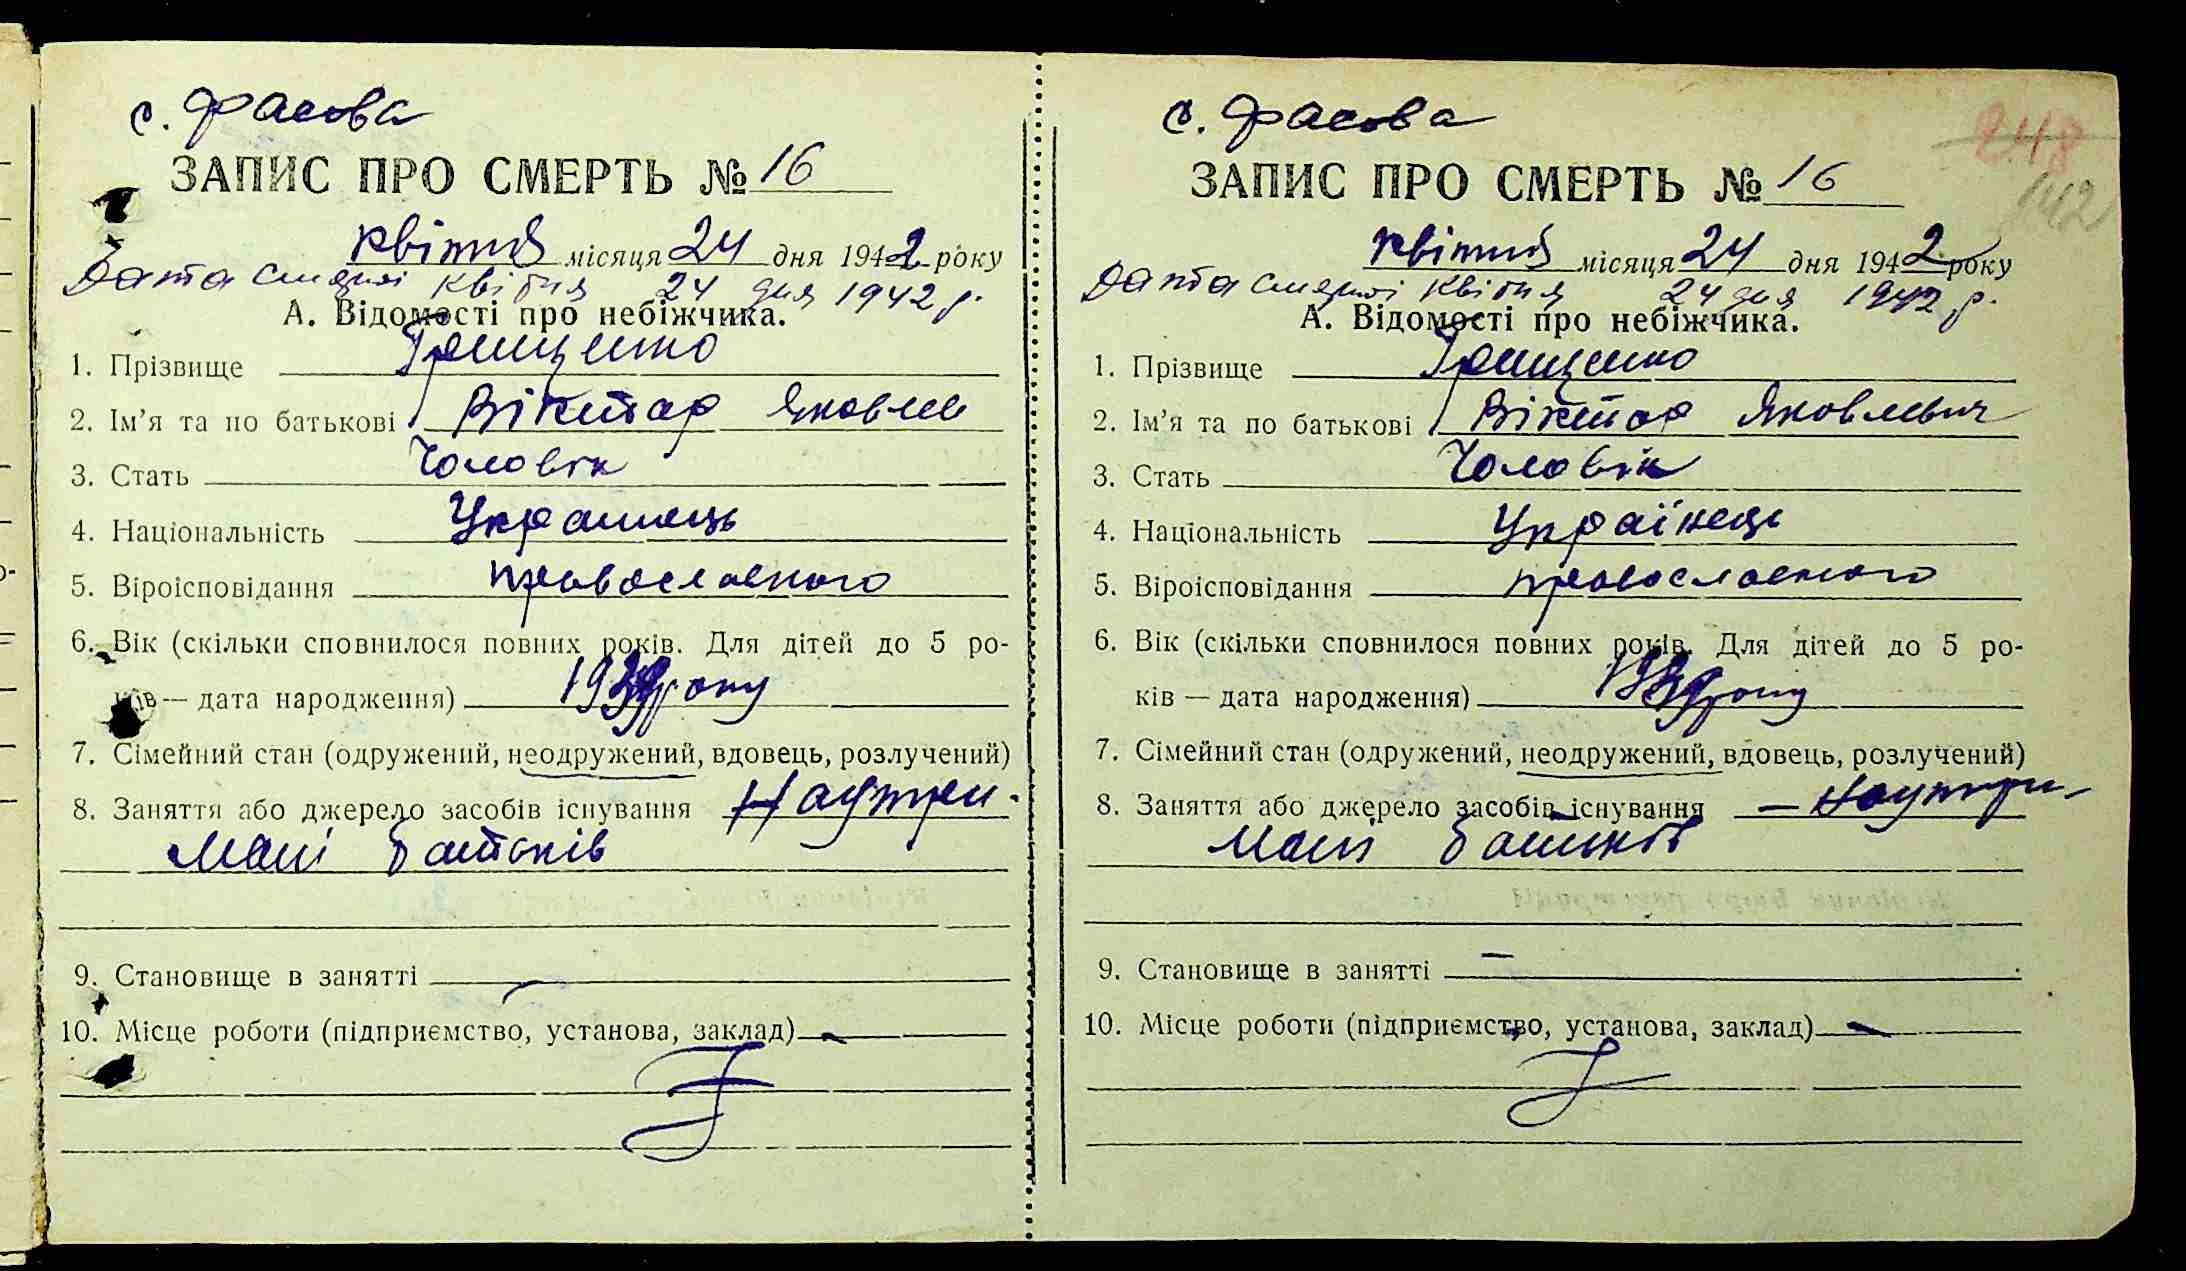 с. Фасова
ЗАПИС ПРО СМЕРТЬ № 16
квітня місяця 24 дня 1942 року
Дата смерті квітня 24 дня 1942 р.
А. Відомості про небіжчика.
1. Прізвище Грищенко
2. Ім'я та по батькові Віктор Яковлев
3. Стать Чоловік
4. Національність Українець
5. Віроісповідання православного
6. Вік (скільки сповнилося повних років. Для дітей до 5 ро-
ків — дата народження) 1939 року
7. Сімейний стан (одружений, неодружений, вдовець, розлучений)
8. Заняття або джерело засобів існування На утри-
мані батьків
9. Становище в занятті —
10. Місце роботи (підприємство, установа, заклад) —
с. Фасова
248
142
ЗАПИС ПРО СМЕРТЬ № 16
квітня місяця 24 дня 1942 року
Дата смерті квітня 24 дня 1942 р.
А. Відомості про небіжчика.
1. Прізвище Грищенко
2. Ім'я та по батькові Віктор Яковлевич
3. Стать Чоловік
4. Національність Українець
5. Віроісповідання православного
6. Вік (скільки сповнилося повних років. Для дітей до 5 ро-
ків — дата народження) 1939 року
7. Сімейний стан (одружений, неодружений, вдовець, розлучений)
8. Заняття або джерело засобів існування — На утри-
мані батьків
9. Становище в занятті —
10. Місце роботи (підприємство, установа, заклад) —